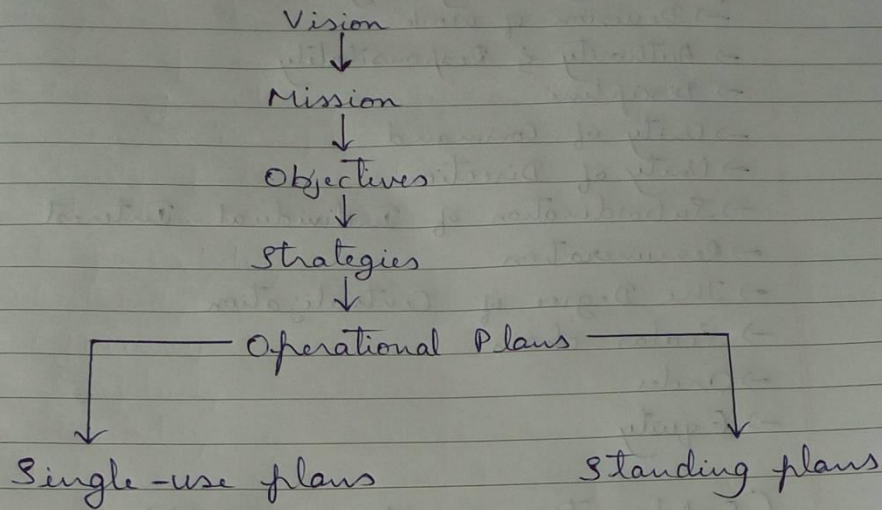 Vision
Mission
Objectives
Strategies
Operational Plans
Single-use plans
Standing plans